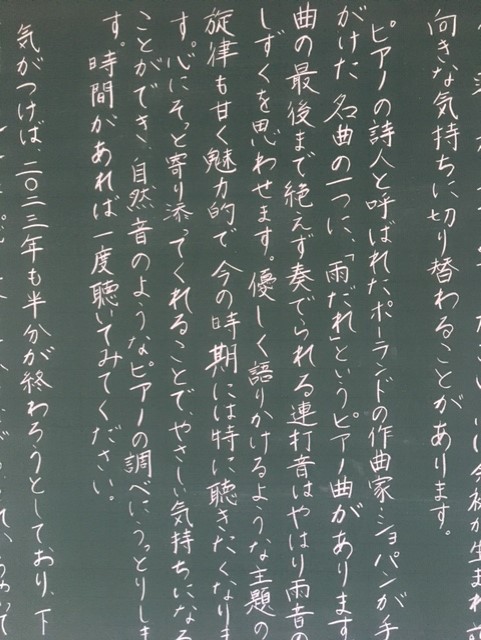 向きな気持ちに切り替わることがあります。
ピアノの詩人と呼ばれたポーランドの作曲家・ショパンが手
がけた名曲の一つに、「雨だれ」というピアノ曲があります
曲の最後まで絶えず奏でられる連打音はやはり雨音の
しずくを思わせます。優しく語りかけるような主題の
旋律も甘く魅力的で今の時期には特に聴きたくなりま
す。心にそっと寄り添ってくれることで、やさしい気持ちになる
ことができ、自然音のようなピアノの調べにうっとりしま
す。時間があれば一度聴いてみてください。
気がつけば二〇二三年も半分が終わろうとしており、下